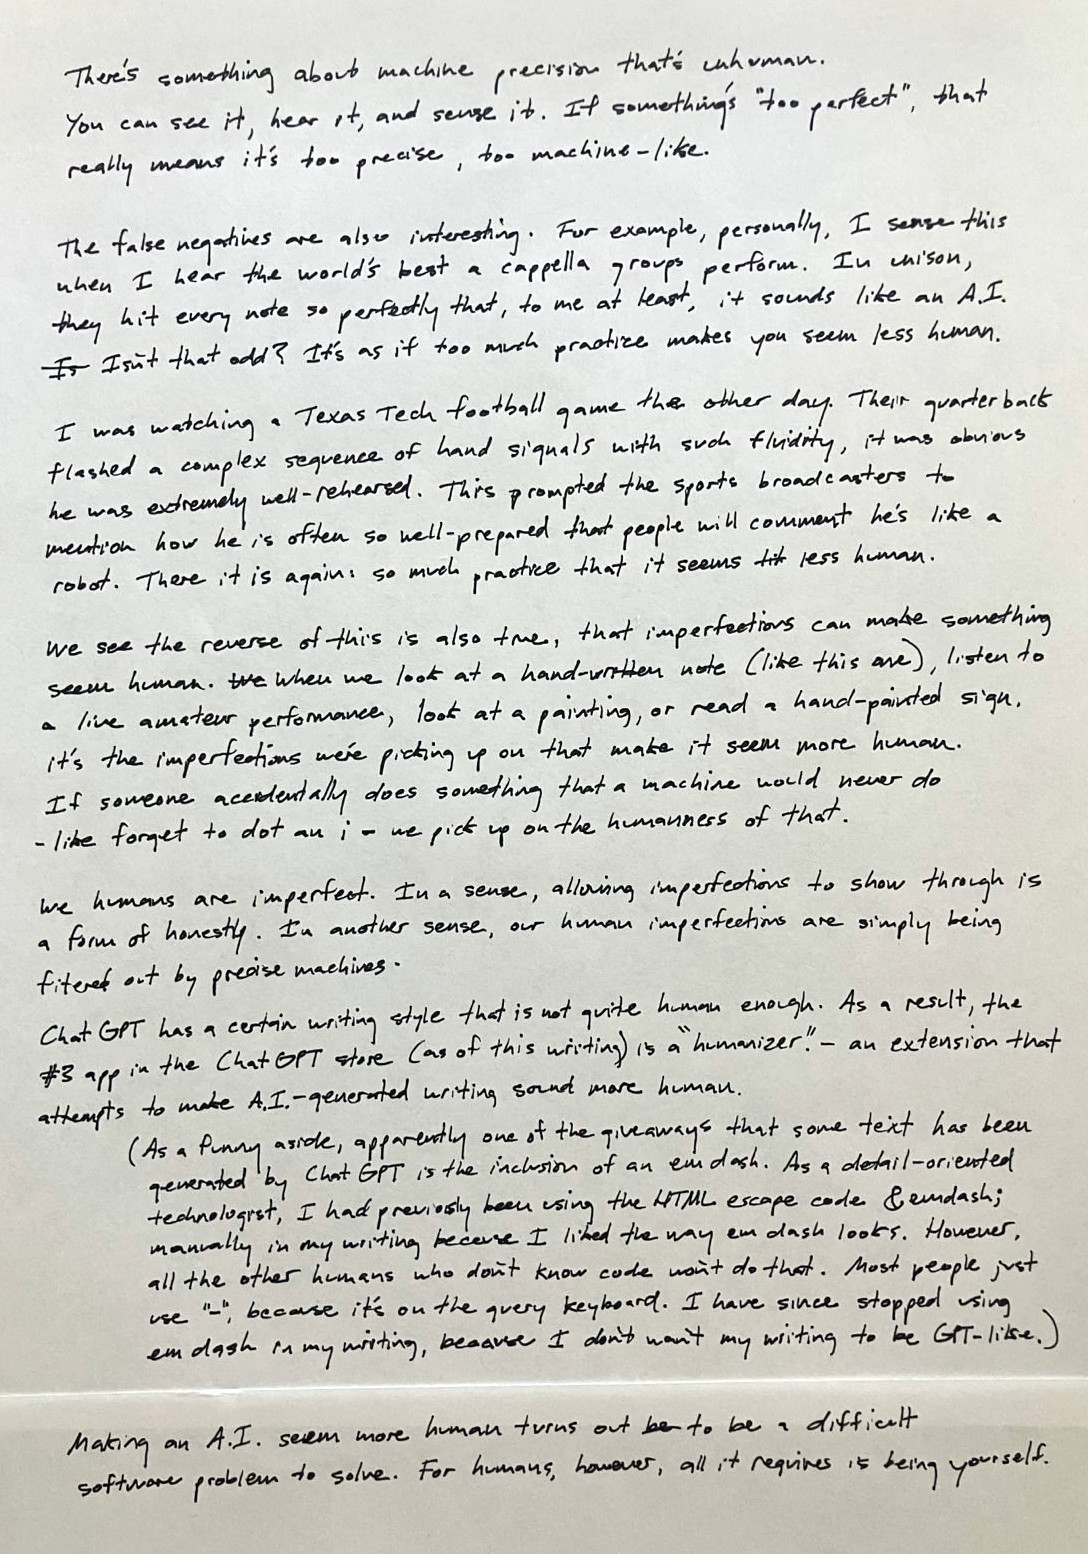 There's something about machine precision that's inhuman.
You can see it, hear it, and sense it. If something's "too perfect", that
really means it's too precise, too machine-like.
The false negatives are also interesting. For example, personally, I sense this
when I hear the world's best a cappella groups perform. In unison,
they hit every note so perfectly that, to me at least, it sounds like an A.I.
Is Isn't that odd? It's as if too much practice makes you seem less human.
I was watching a Texas Tech football game the other day. Their quarterback
flashed a complex sequence of hand signals with such fluidity, it was obvious
he was extremely well-rehearsed. This prompted the sports broadcasters to
mention how he is often so well-prepared that people will comment he's like a
robot. There it is again: so much practice that it seems less human.
We see the reverse of this is also true, that imperfections can make something
seem human. We When we look at a hand-written note (like this one), listen to
a live amateur performance, look at a painting, or read a hand-painted sign,
it's the imperfections we're picking up on that make it seem more human.
If someone accidentally does something that a machine would never do
- like forget to dot an i - we pick up on the humanness of that.
We humans are imperfect. In a sense, allowing imperfections to show through is
a form of honesty. In another sense, our human imperfections are simply being
fitered out by precise machines.
ChatGPT has a certain writing style that is not quite human enough. As a result, the
#3 app in the ChatGPT store (as of this writing) is a "humanizer." - an extension that
attempts to make A.I.-generated writing sound more human.
(As a funny aside, apparently one of the giveaways that some text has been
generated by ChatGPT is the inclusion of an em dash. As a detail-oriented
technologist, I had previously been using the HTML escape code &emdash;
manually in my writing because I liked the way em dash looks. However,
all the other humans who don't know code won't do that. Most people just
use "-", because it's on the query keyboard. I have since stopped using
em dash in my writing, because I don't want my writing to be GPT-like.)
Making an A.I. seem more human turns out be to be a difficult
software problem to solve. For humans, however, all it requires is being yourself.